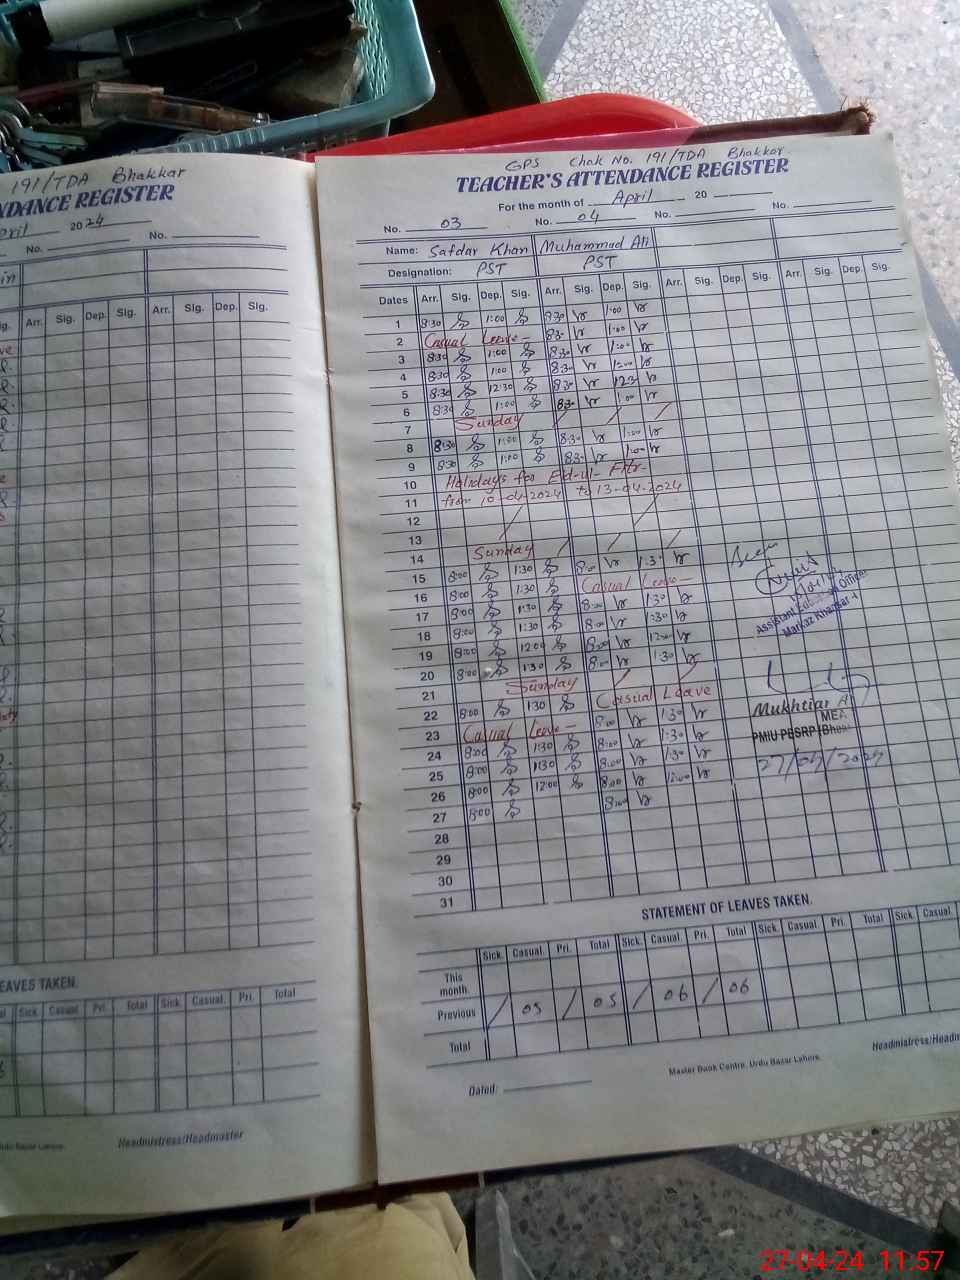 191/TDA Bhakkar
NDANCE REGISTER
pril 2024
No. No.
in
ig. Arr. Sig. Dep. Sig. Arr. Sig. Dep. Sig.
LEAVES TAKEN.
Sick. Casual. Pri. Total Sick. Casual. Pri. Total
Urdu Bazar Lahore.
Headmistress/Headmaster
GPS Chak No. 191/TDA Bhakkar
TEACHER'S ATTENDANCE REGISTER
For the month of April 20
No. 03 No. 04 No. No.
Name: Safdar Khan Muhammad Ali
Designation: PST PST
Dates Arr. Sig. Dep. Sig. Arr. Sig. Dep. Sig. Arr. Sig. Dep. Sig. Arr. Sig. Dep. Sig.
1 8:30 1:00 830 1:00
2 Casual Leave - 83- 1:00
3 8:30 1:00 8:30 1:00
4 8:30 1:00 8:30 1:00
5 8:30 12:30 8:30 123
6 8:30 1:00 8:30 1:00
7 Sunday
8 8:30 1:00 830 1:00
9 8:30 1:00 83- 1:00
10 Holidays for Eid-ul-Fitr-
11 from 10-04-2024 to 13-04-2024
12
13
14 Sunday
15 8:00 1:30 8:00 1:30
16 8:00 1:30 Casual Leave-
17 8:00 1:30 8:00 1:30
18 8:00 1:30 8:00 1:30
19 8:00 12:00 8:00 12:00
20 8:00 1:30 8:00 1:30
21 Sunday
22 8:00 1:30 Casual Leave
23 Casual Leave- 8:00 1:30
24 8:00 1:30 8:00 1:30
25 8:00 1:30 8:00 1:30
26 8:00 12:00 8:00 12:00
27 8:00 8:00
28
29
30
31
Assistant Education Officer
Markaz Khansar-I
Mukhtiar A
MEA
PMIU PESRP
27/04/2024
STATEMENT OF LEAVES TAKEN.
Sick. Casual. Pri. Total Sick. Casual. Pri. Total Sick. Casual. Pri. Total Sick. Casual.
This month.
Previous / 05 / 05 / 06 / 06
Total
Dated:
Master Book Centre, Urdu Bazar Lahore.
Headmistress/Headm
27-04-24 11:57